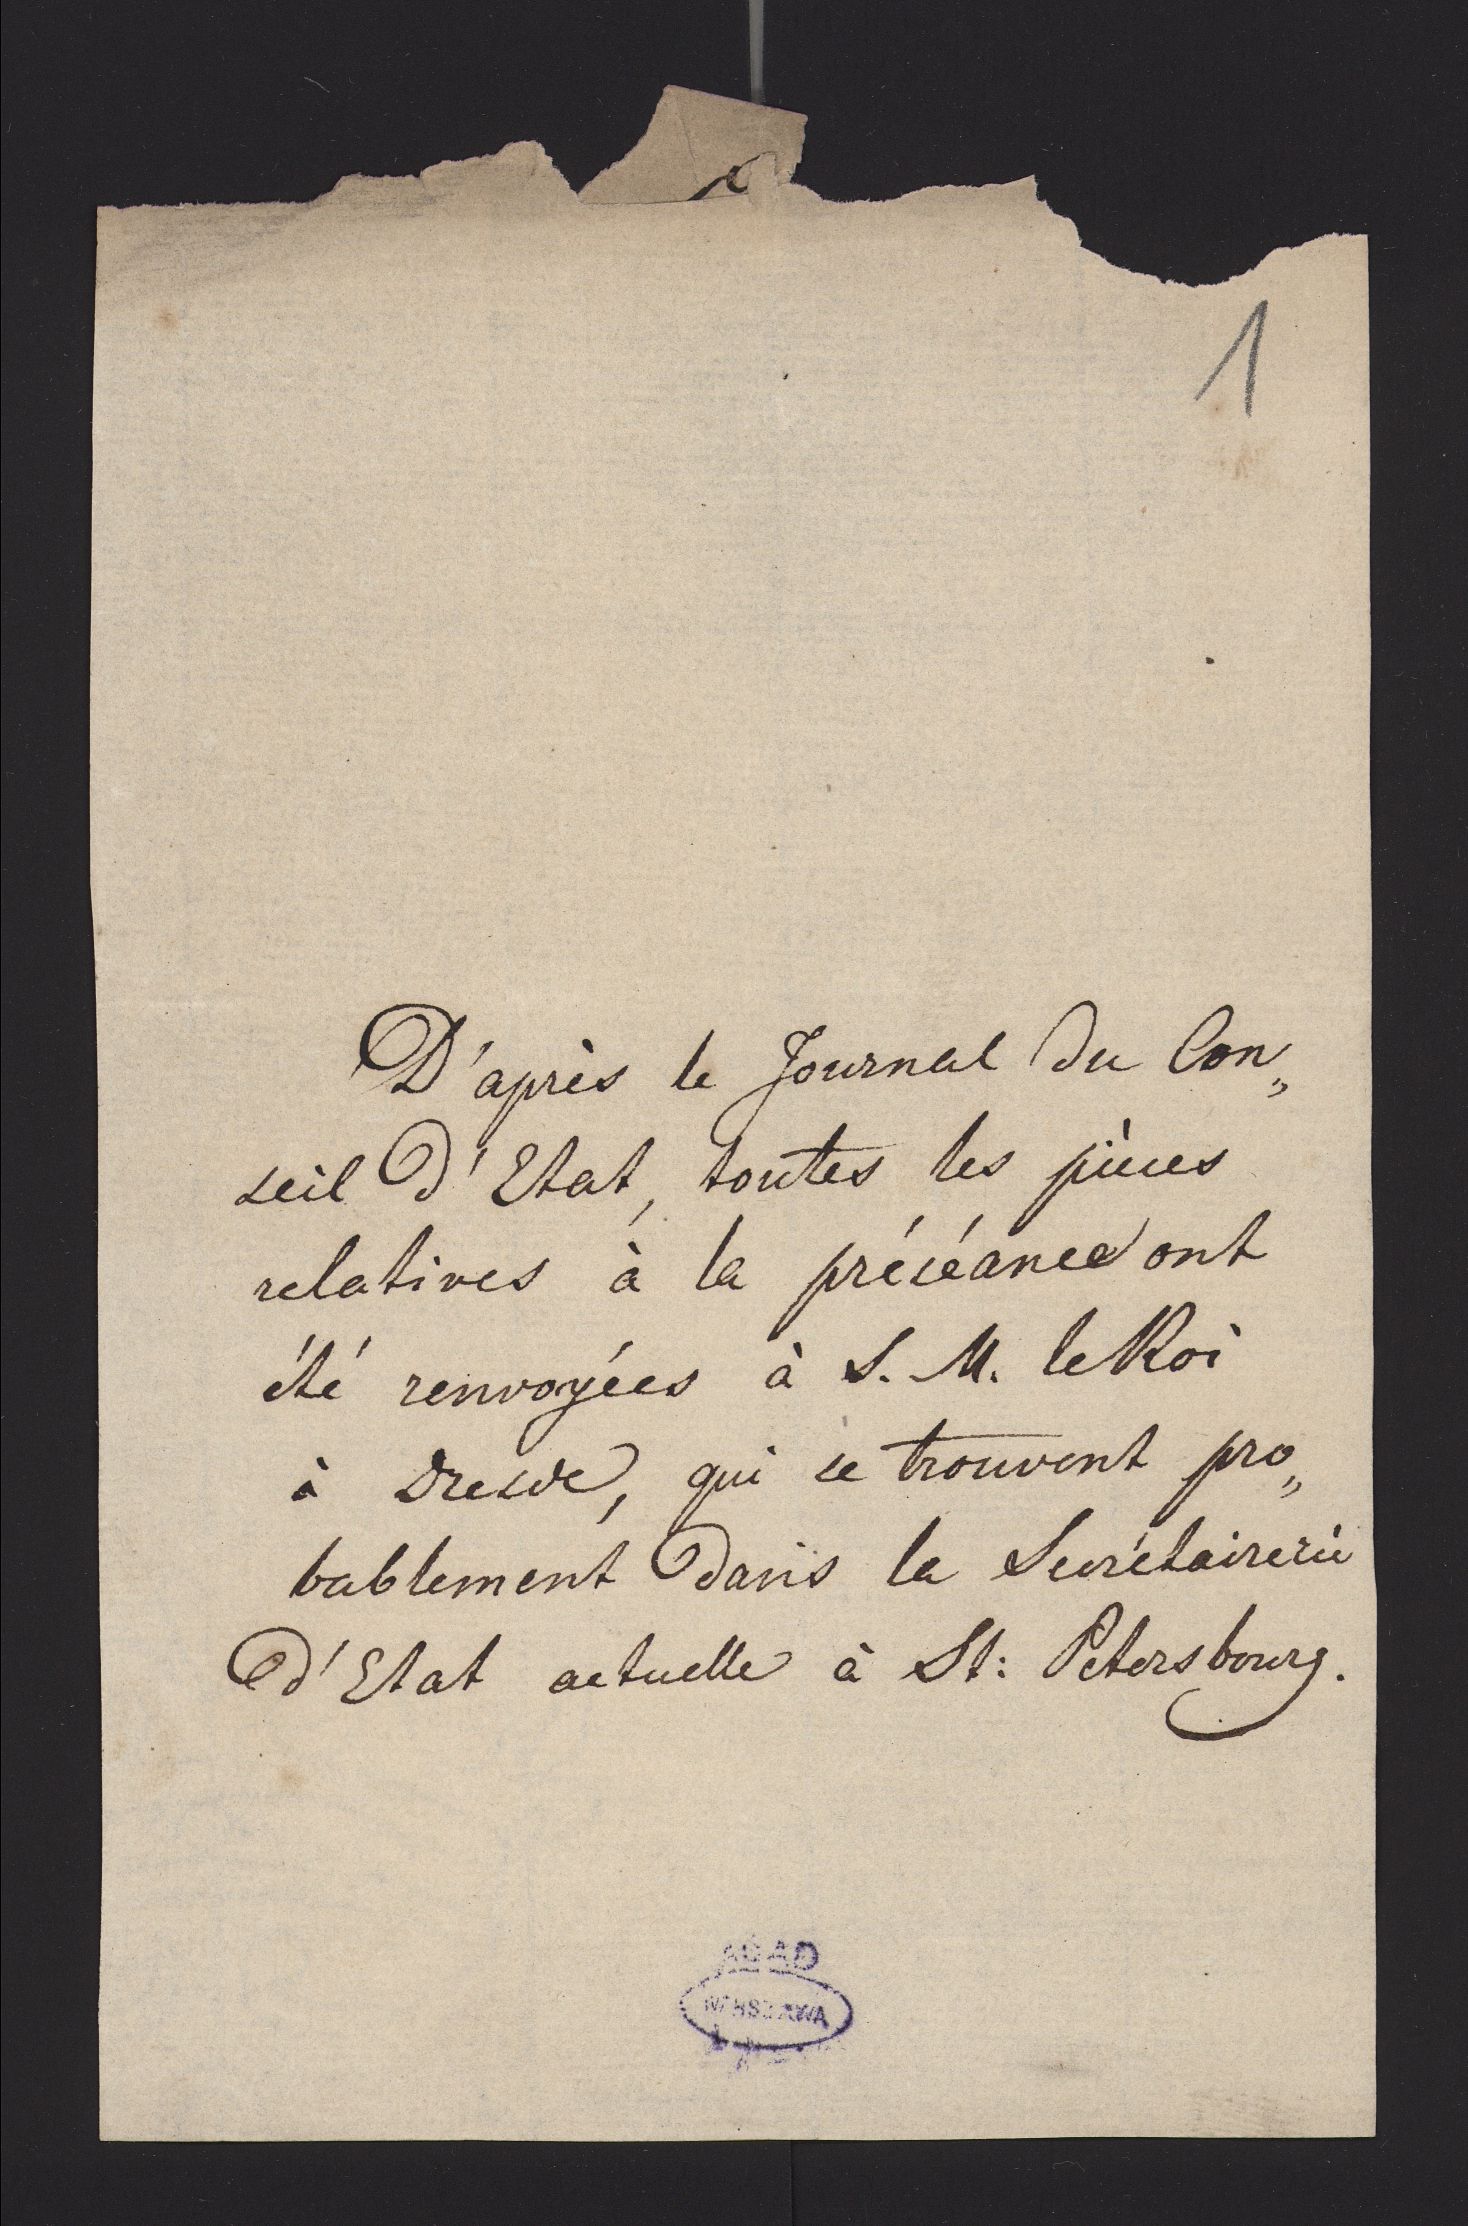 1
D'après le Journal du Con„
seil d'Etat, toutes les pièces
relatives à la préséance ont
été renvoyées à S. M. le Roi
à Dresde, qui se trouvent pro„
bablement dans la Secrétairerie
d'Etat actuelle à St: Petersbourg.
AGAD
WARSZAWA